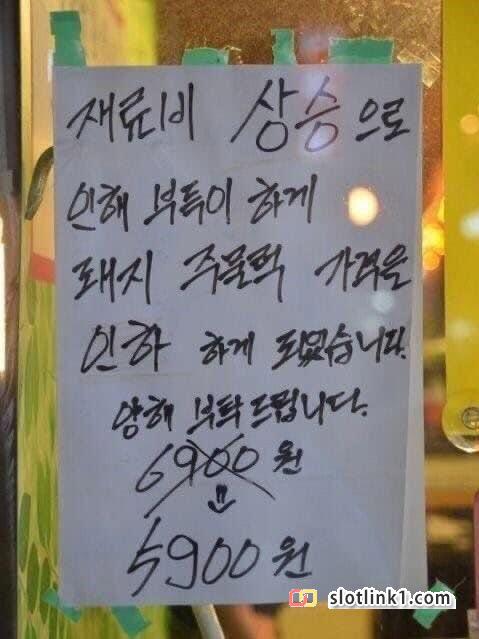 재료비 상승으로
인해 부득이 하게
돼지 주물럭 가격을
인하 하게 되었습니다.
양해 부탁드립니다.
6900원
⇓
5900원
slotlink1.com